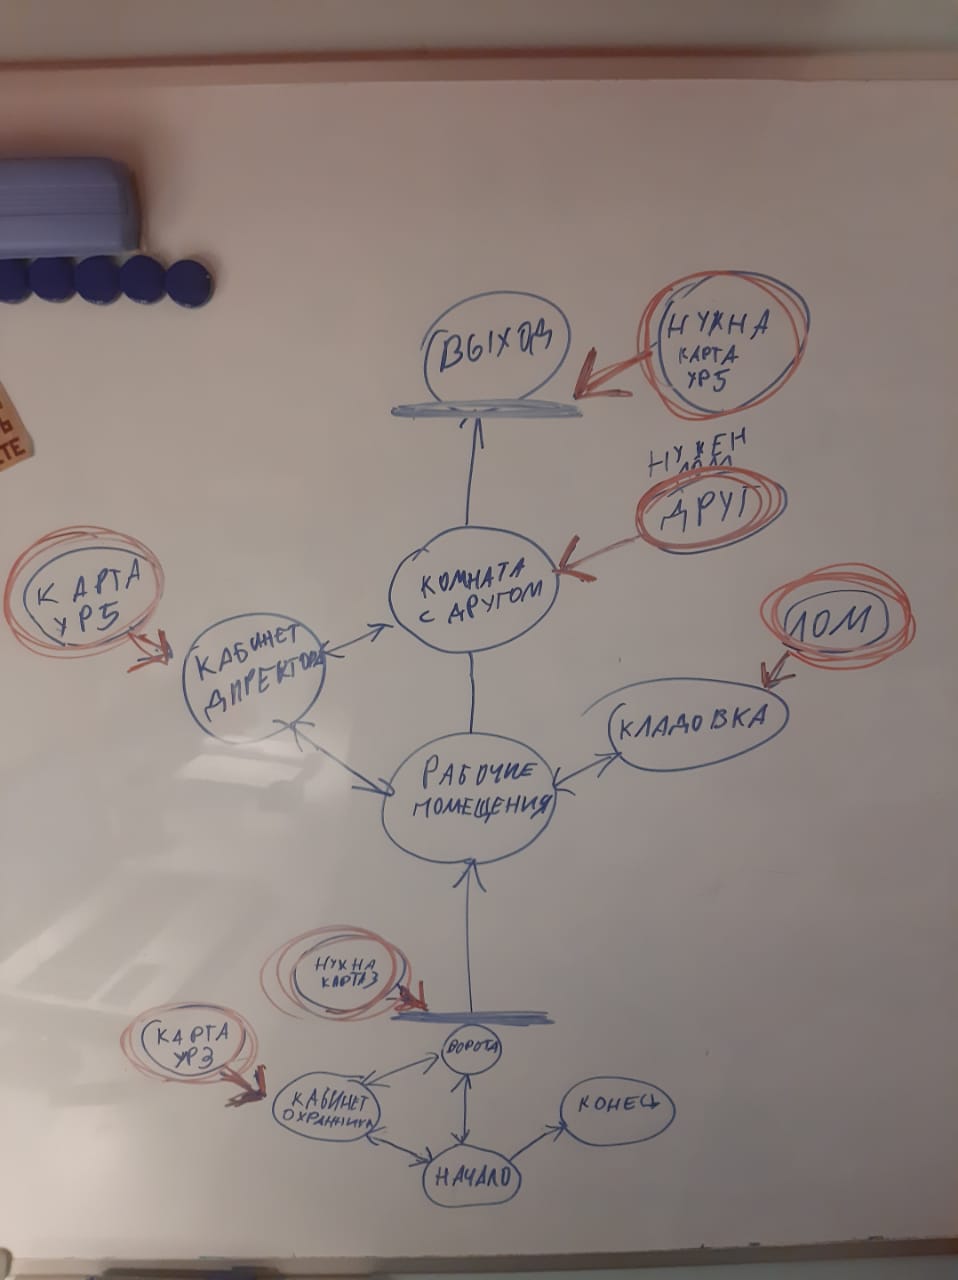 ВЫХОД
НУЖНА
КАРТА
УР5
НУЖЕН
ЛОМ
ДРУГ
КАРТА
УР5
КОМНАТА
С ДРУГОМ
ЛОМ
КАБИНЕТ
ДИРЕКТОРА
КЛАДОВКА
РАБОЧИЕ
ПОМЕЩЕНИЯ
НУЖНА
КАРТА3
КАРТА
УР3
ВОРОТА
КАБИНЕТ
ОХРАННИКА
КОНЕЦ
НАЧАЛО
Ь
ТЕ